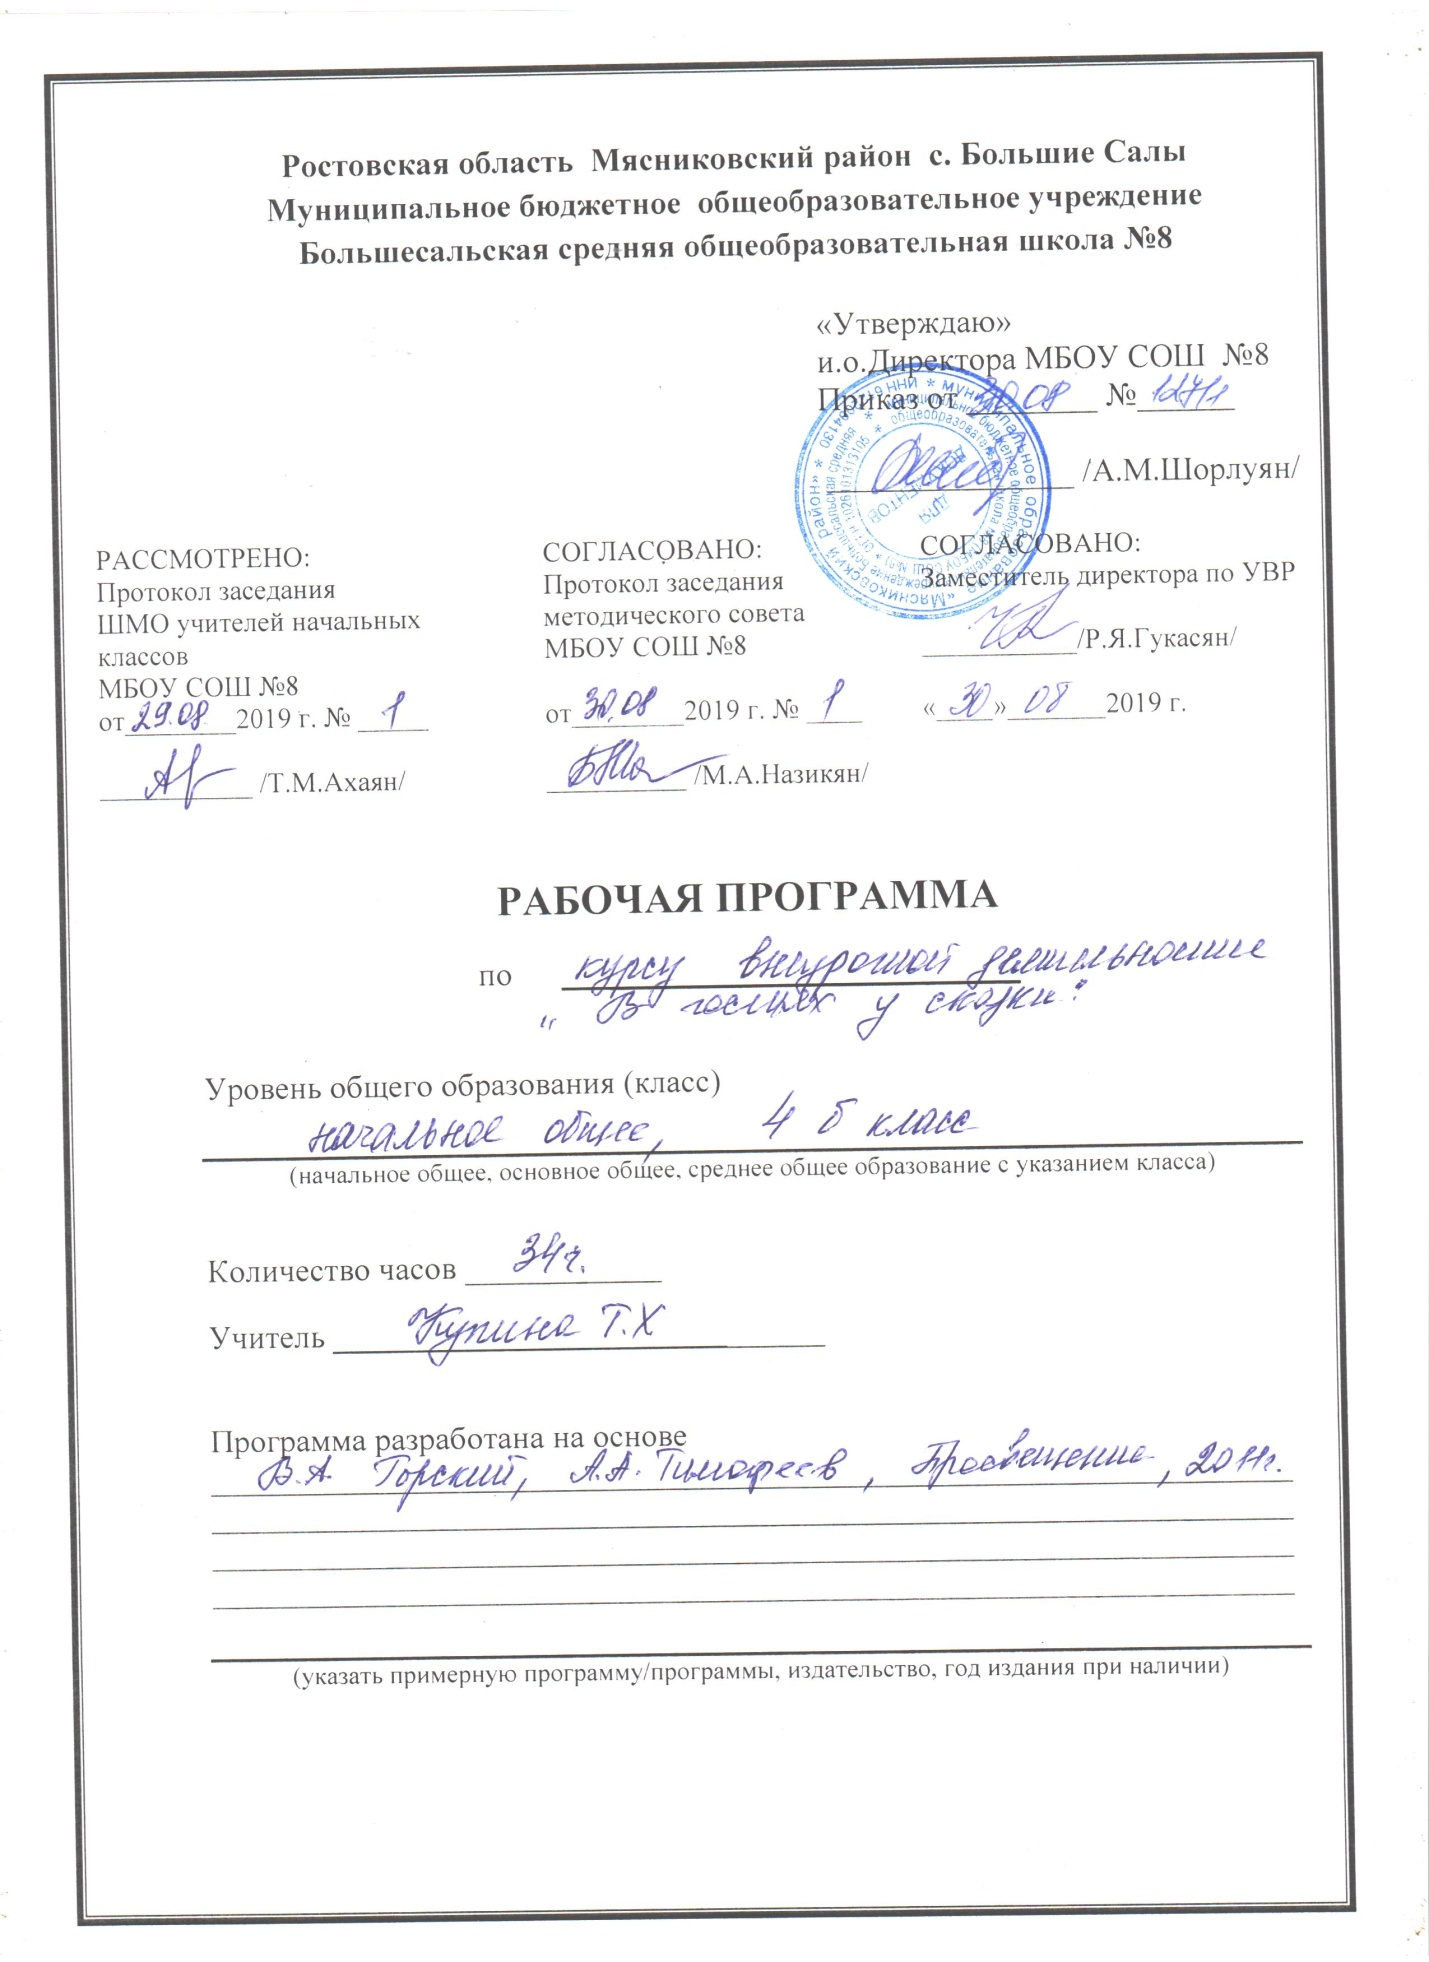 Ростовская область Мясниковский район с. Большие Салы
Муниципальное бюджетное общеобразовательное учреждение
Большесальская средняя общеобразовательная школа №8
«Утверждаю»
и.о.Директора МБОУ СОШ №8
Приказ от 30.08 № 127/1
/А.М.Шорлуян/
РАССМОТРЕНО:
Протокол заседания
ШМО учителей начальных
классов
МБОУ СОШ №8
от 29.08 2019 г. № 1
/Т.М.Ахаян/
СОГЛАСОВАНО:
Протокол заседания
методического совета
МБОУ СОШ №8
от 30.08 2019 г. № 1
/М.А.Назикян/
СОГЛАСОВАНО:
Заместитель директора по УВР
/Р.Я.Гукасян/
«30» 08 2019 г.
ДЛЯ
ДОКУМЕНТОВ
РАБОЧАЯ ПРОГРАММА
по курсу внеурочной деятельности
„В гостях у сказки"
Уровень общего образования (класс)
начальное общее, 4 б класс
(начальное общее, основное общее, среднее общее образование с указанием класса)
Количество часов 34ч.
Учитель Купина Т.Х
Программа разработана на основе
В.А. Горский, А.А. Тимофеев, Просвещение, 2011г.
(указать примерную программу/программы, издательство, год издания при наличии)